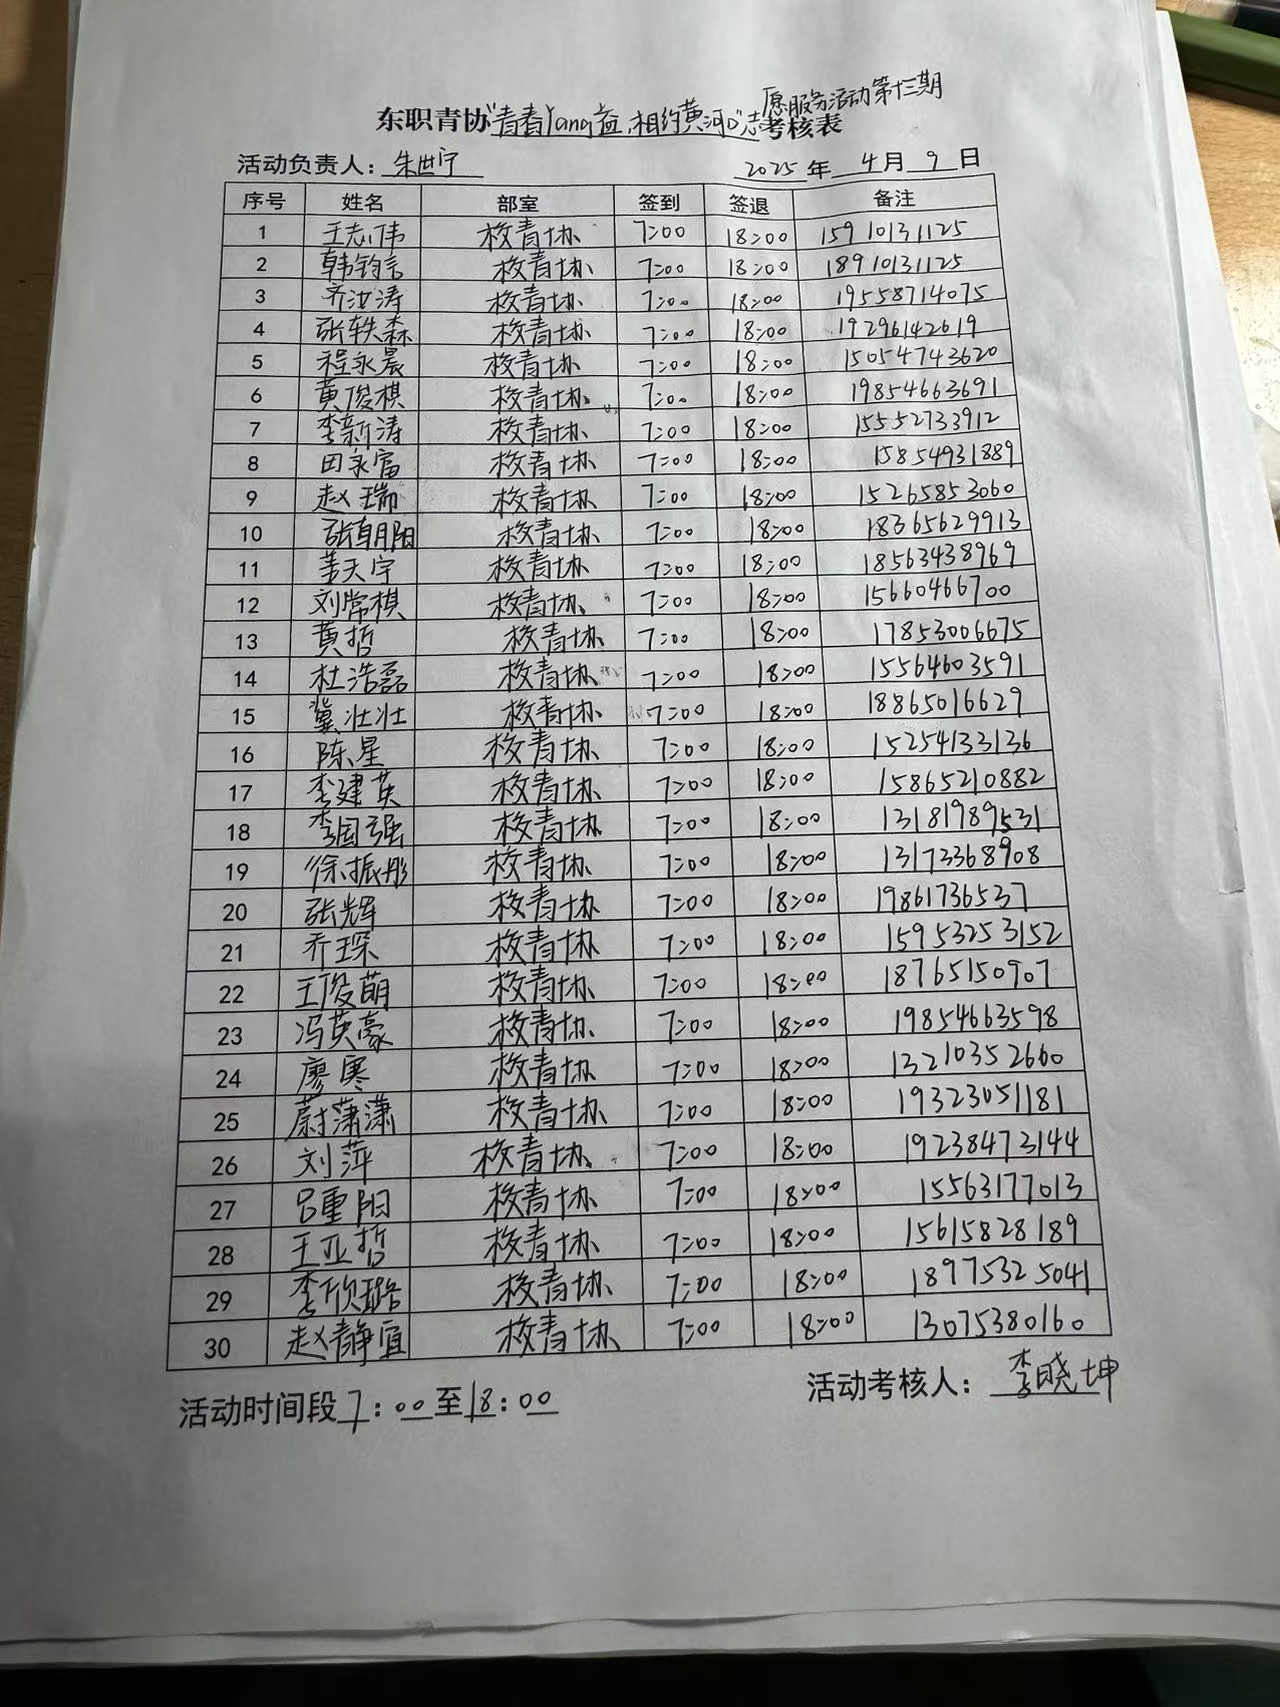 愿服务活动第十三期
东职青协"青春Yang益,相约黄河口"志考核表
活动负责人: 朱世宁 2025年 4月 9日
序号 姓名 部室 签到 签退 备注
1 王志伟 校青协 7:00 18:00 15910131125
2 韩钧言 校青协 7:00 18:00 18910131125
3 齐汝涛 校青协 7:00 18:00 19558714075
4 张轶森 校青协 7:00 18:00 19296142619
5 程永晨 校青协 7:00 18:00 15054743620
6 黄俊棋 校青协 7:00 18:00 19854663691
7 李新涛 校青协 7:00 18:00 15552733912
8 田家富 校青协 7:00 18:00 15854931889
9 赵瑞 校青协 7:00 18:00 15265853060
10 张朝阳 校青协 7:00 18:00 18365629913
11 姜天宇 校青协 7:00 18:00 18563438969
12 刘常棋 校青协 7:00 18:00 15660466700
13 黄哲 校青协 7:00 18:00 17853006675
14 杜浩磊 校青协 7:00 18:00 15564603591
15 冀壮壮 校青协 7:00 18:00 18865016629
16 陈星 校青协 7:00 18:00 15254133136
17 李建英 校青协 7:00 18:00 15865210882
18 李国强 校青协 7:00 18:00 13181989531
19 徐振彤 校青协 7:00 18:00 13173368908
20 张辉 校青协 7:00 18:00 19861736537
21 乔琛 校青协 7:00 18:00 15953253152
22 王俊萌 校青协 7:00 18:00 18765150907
23 冯英豪 校青协 7:00 18:00 19854663598
24 廖寒 校青协 7:00 18:00 13210352660
25 蔚潇潇 校青协 7:00 18:00 19323051181
26 刘萍 校青协 7:00 18:00 19238473144
27 吕重阳 校青协 7:00 18:00 15563177013
28 王亚哲 校青协 7:00 18:00 15615828189
29 李欣璐 校青协 7:00 18:00 18975325041
30 赵静宜 校青协 7:00 18:00 13075380160
活动时间段 7:00至18:00 活动考核人: 李晓坤